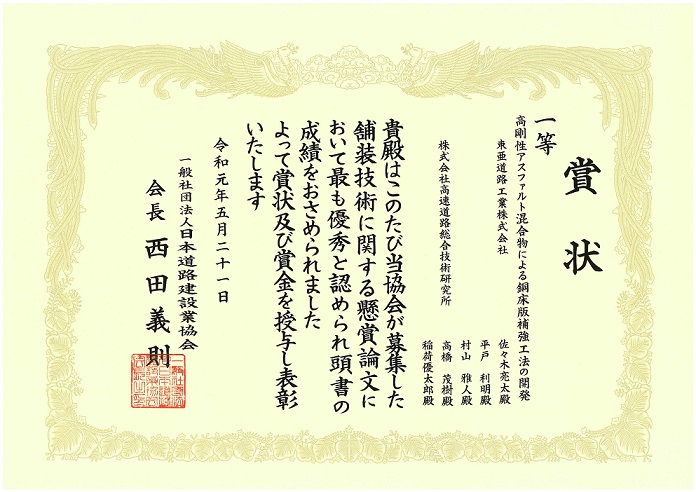 賞状
一等
高剛性アスファルト混合物による鋼床版補強工法の開発
東亜道路工業株式会社
佐々木亮太殿
平戸利明殿
村山雅人殿
株式会社高速道路総合技術研究所
高橋茂樹殿
稲荷優太郎殿
貴殿はこのたび当協会が募集した
舗装技術に関する懸賞論文に
おいて最も優秀と認められ頭書の
成績をおさめられました
よって賞状及び賞金を授与し表彰
いたします
令和元年五月二十一日
一般社団法人日本道路建設業協会
会長 西田義則